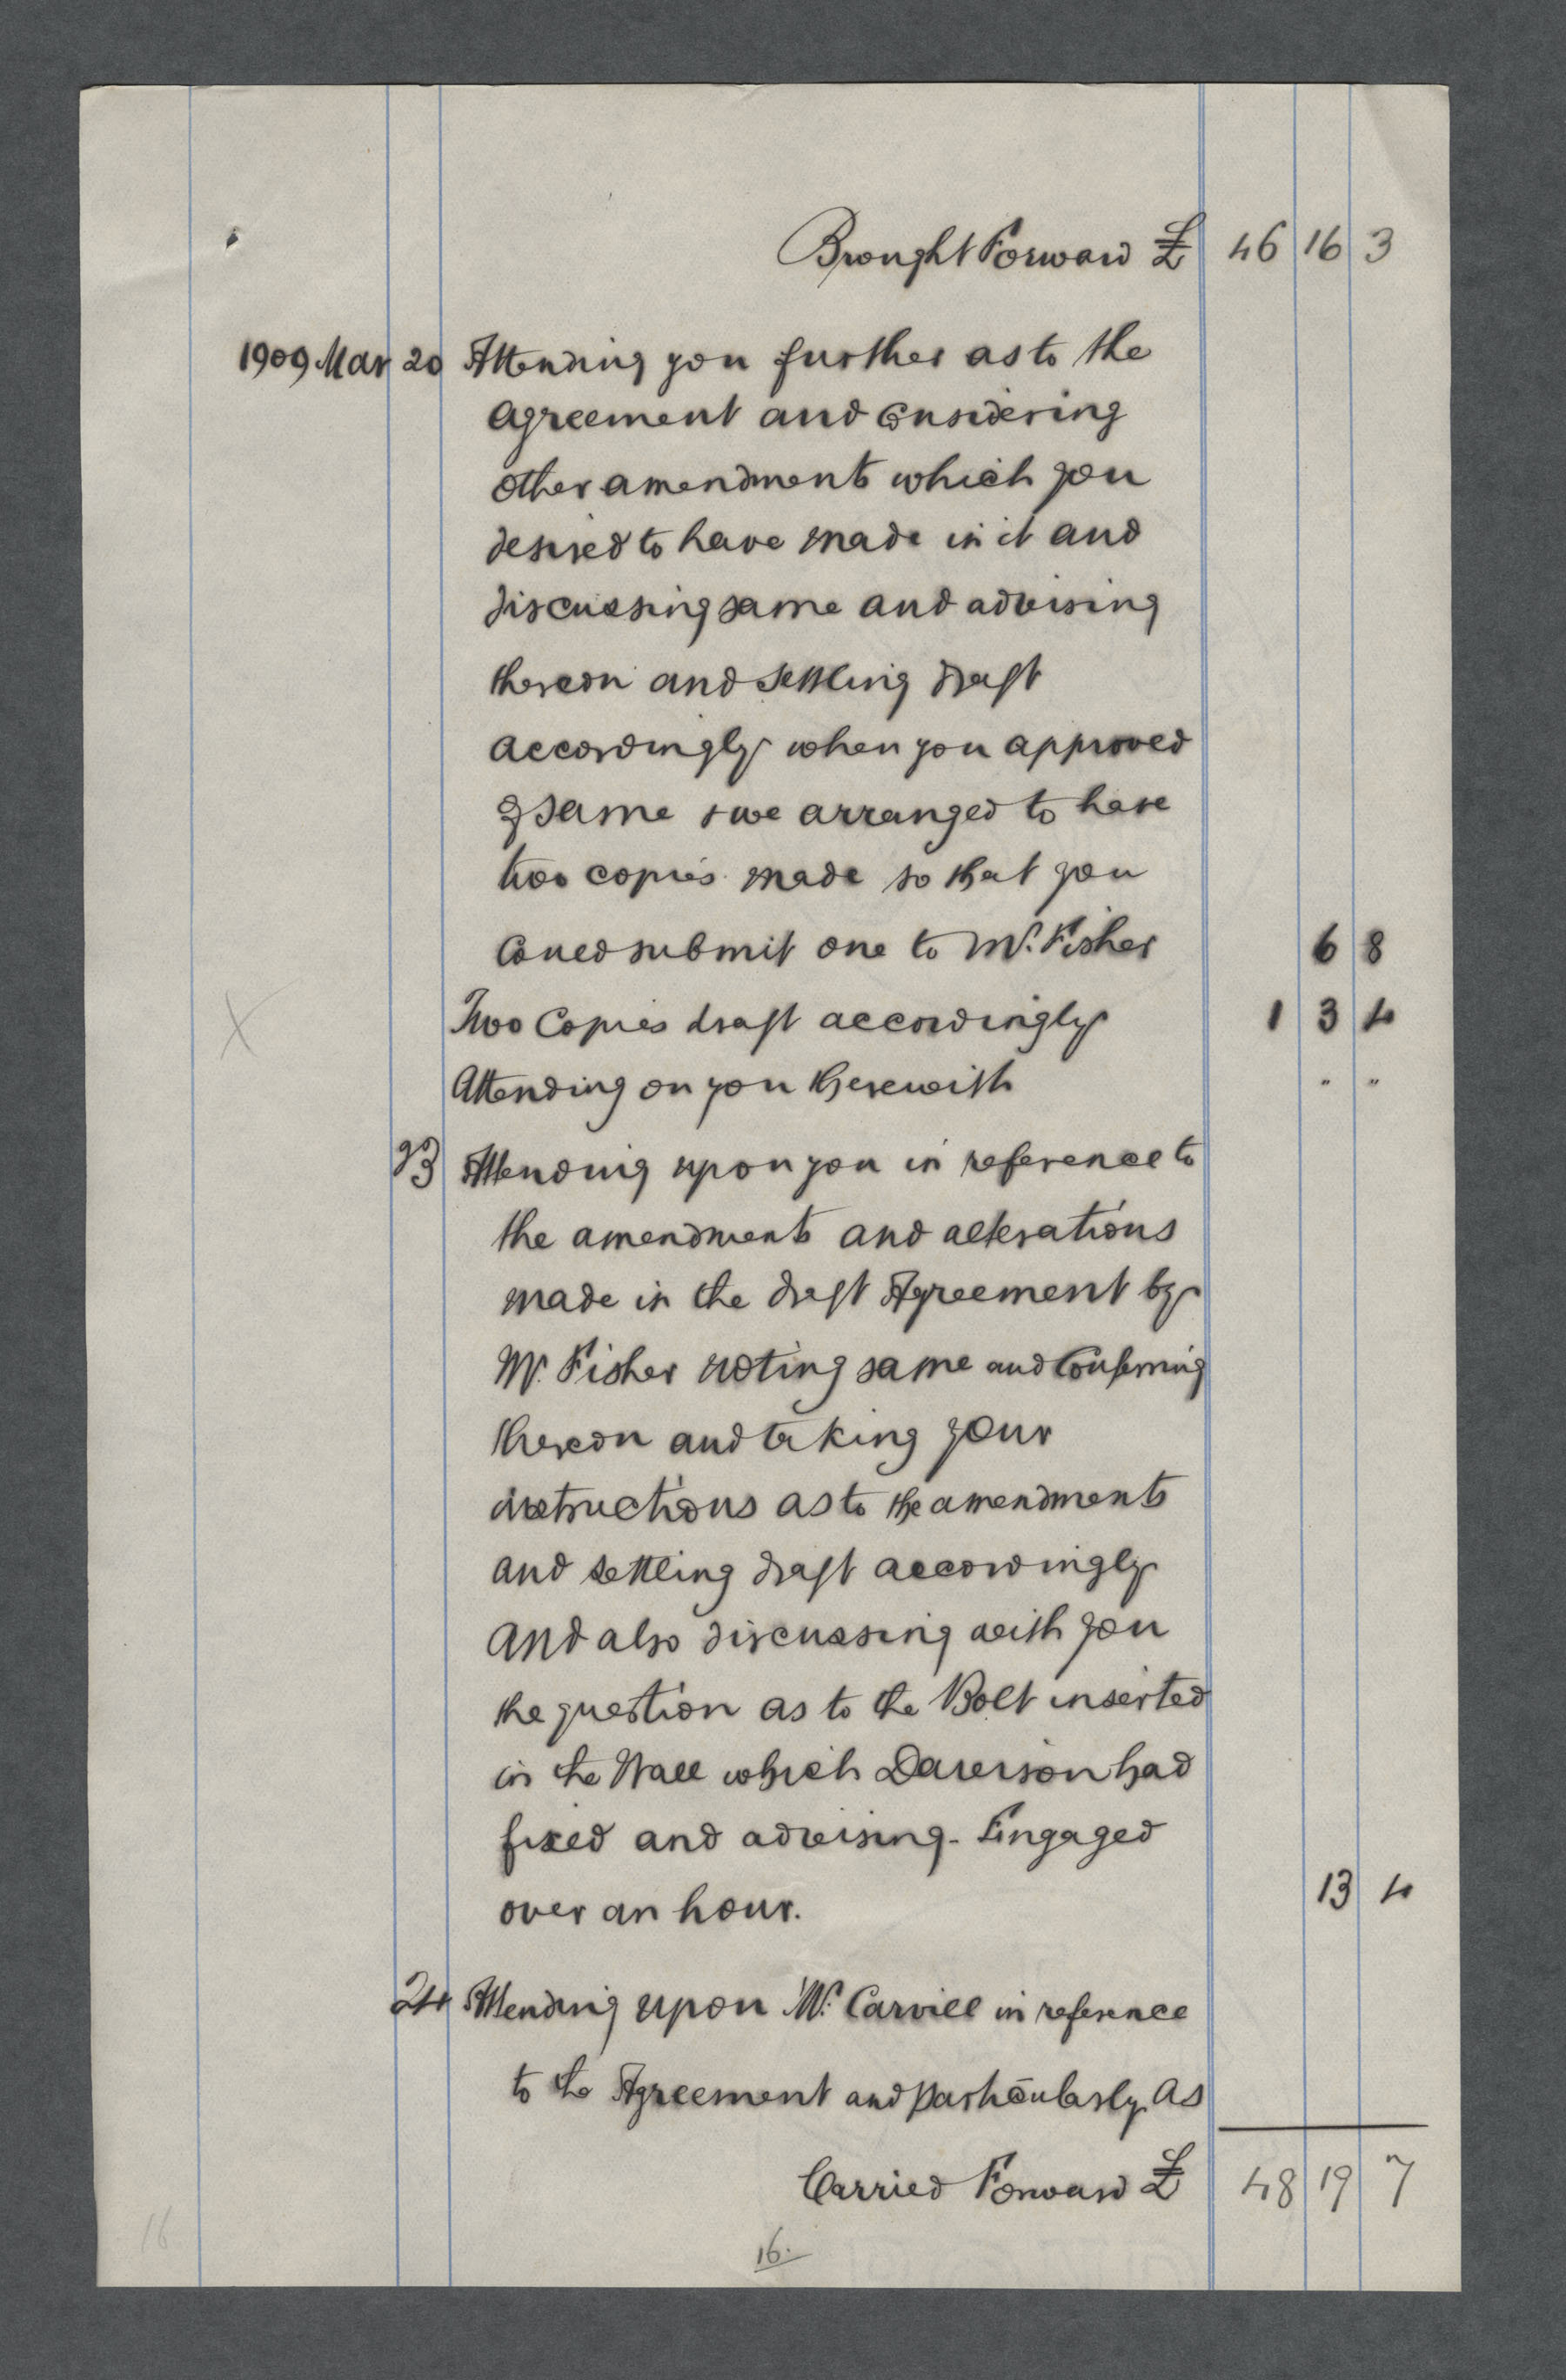 Brought Forward £ 46 16 3
1909 Mar 20 Attending you further as to the
agreement and considering
other amendments which you
desired to have made in it and
discussing same and advising
thereon and settling draft
accordingly when you approved
of same & we arranged to have
two copies made so that you
could submit one to Mr. Fisher 6 8
Two Copies draft accordingly 1 3 4
Attending on you therewith " "
23 Attending upon you in reference to
the amendments and alterations
made in the draft Agreement by
Mr. Fisher noting same and Conferring
thereon and taking your
instructions as to the amendments
and settling draft accordingly
and also discussing with you
the question as to the Bolt inserted
in the Wall which Davison had
fixed and advising - Engaged
over an hour. 13 4
24 Attending upon Mr. Carvill in reference
to the Agreement and particularly as
Carried Forward £ 48 19 7
16.
16